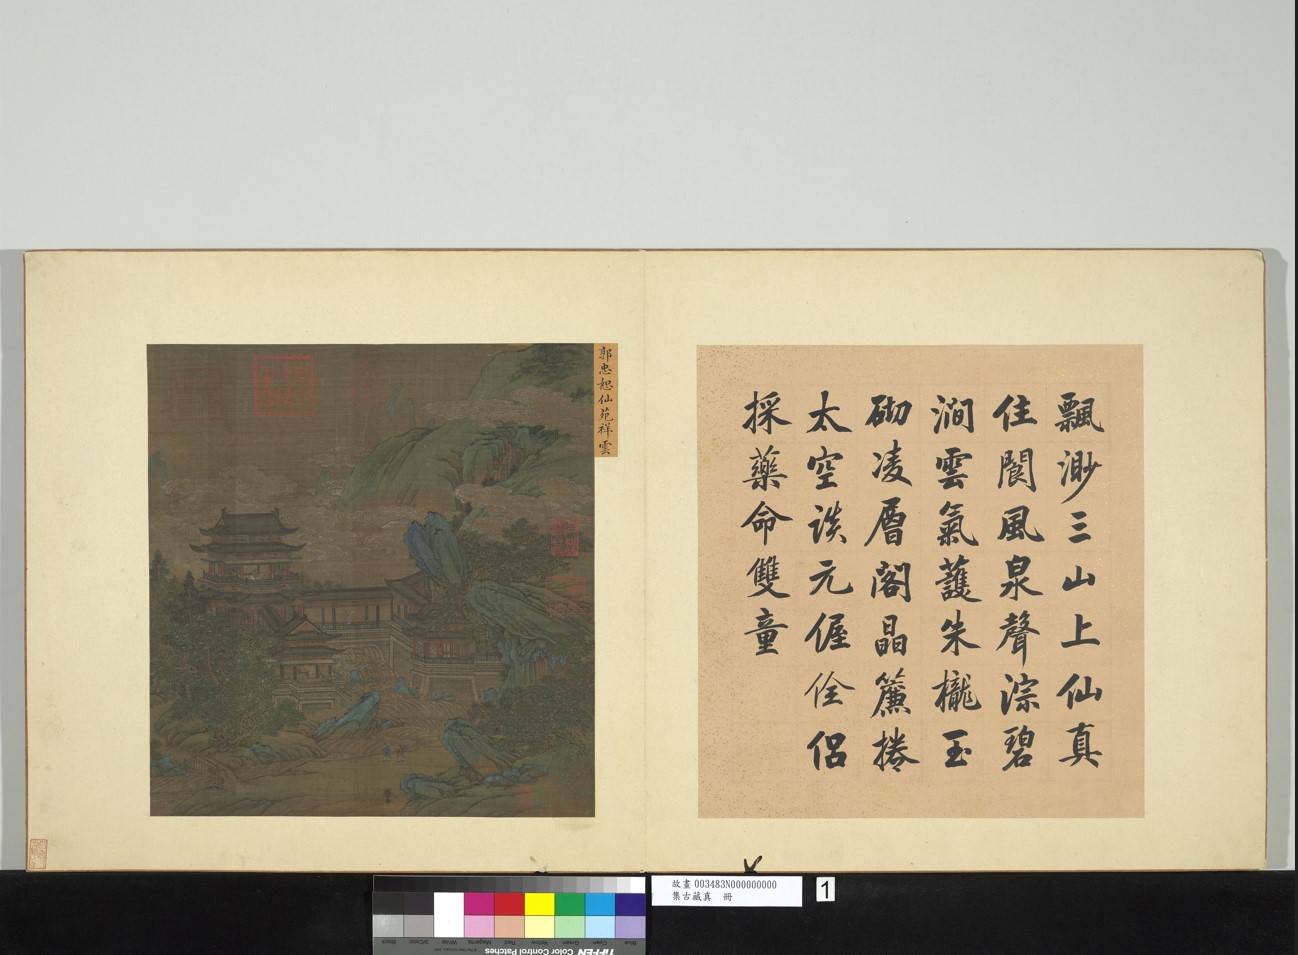 飄渺三山上仙真
住閬風泉聲淙碧
澗雲氣護朱櫳玉
砌凌層閣晶簾捲
太空談元偓佺侶
採藥命雙童
郭忠恕仙苑祥雲
故畫 003483N000000000
集古藏真 冊
1
TIFFEN Color Control Patches
Blue
Cyan
Green
Yellow
Red
Magenta
White
3/Color
Black